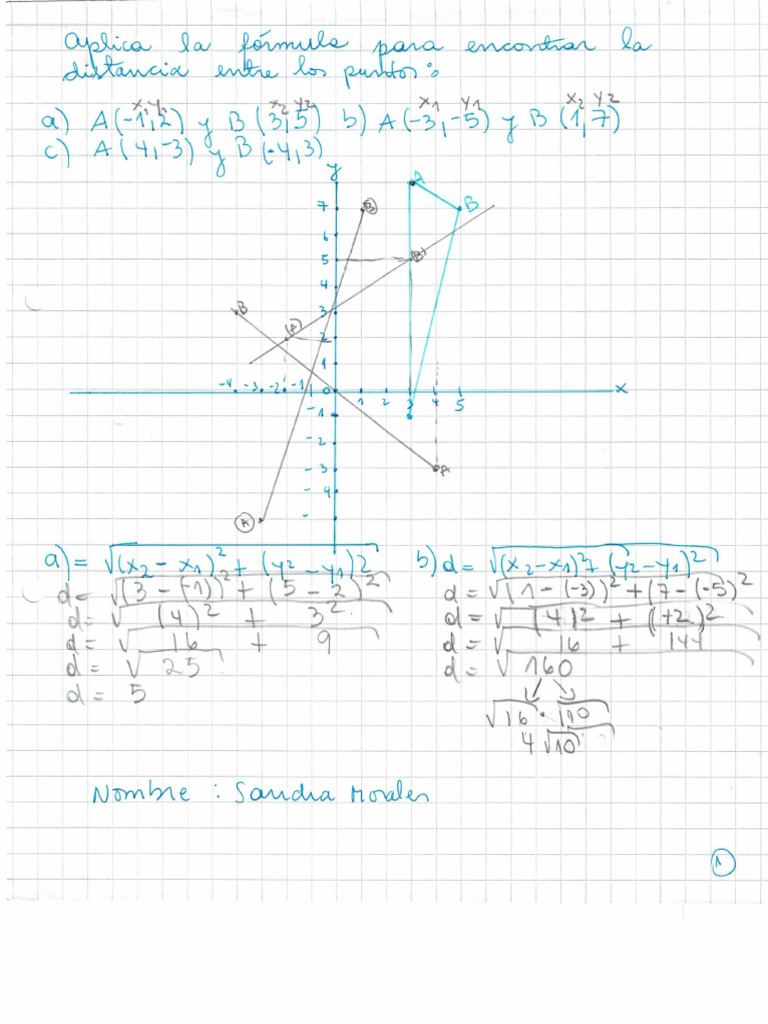 Aplica la fórmula para encontrar la
distancia entre los puntos:
x₁ y₁ x₂ y₂ x₁ y₁ x₂ y₂
a) A(-1,2) y B(3,5) b) A(-3,-5) y B(1,7)
c) A(4,-3) y B(-4,3)
y
A
7 B B
6
5 (B)
4
B 3
(A) 2
1
-4 -3 -2 -1 0 1 2 3 4 5 x
-1
-2
-3 A
-4
A
a) = √(x₂ - x₁)² + (y² - y₁)2
d = √(3 - (-1))² + (5 - 2)²
d = √(4)² + 3²
d = √16 + 9
d = √25
d = 5
b) d = √(x₂-x₁)²+ (y²-y₁)²
d = √(1-(-3))²+(7-(-5)²
d = √(4)² + (+2)²
d = √16 + 144
d = √160
√16 · √10
4√10
Nombre : Sandra Morales
1